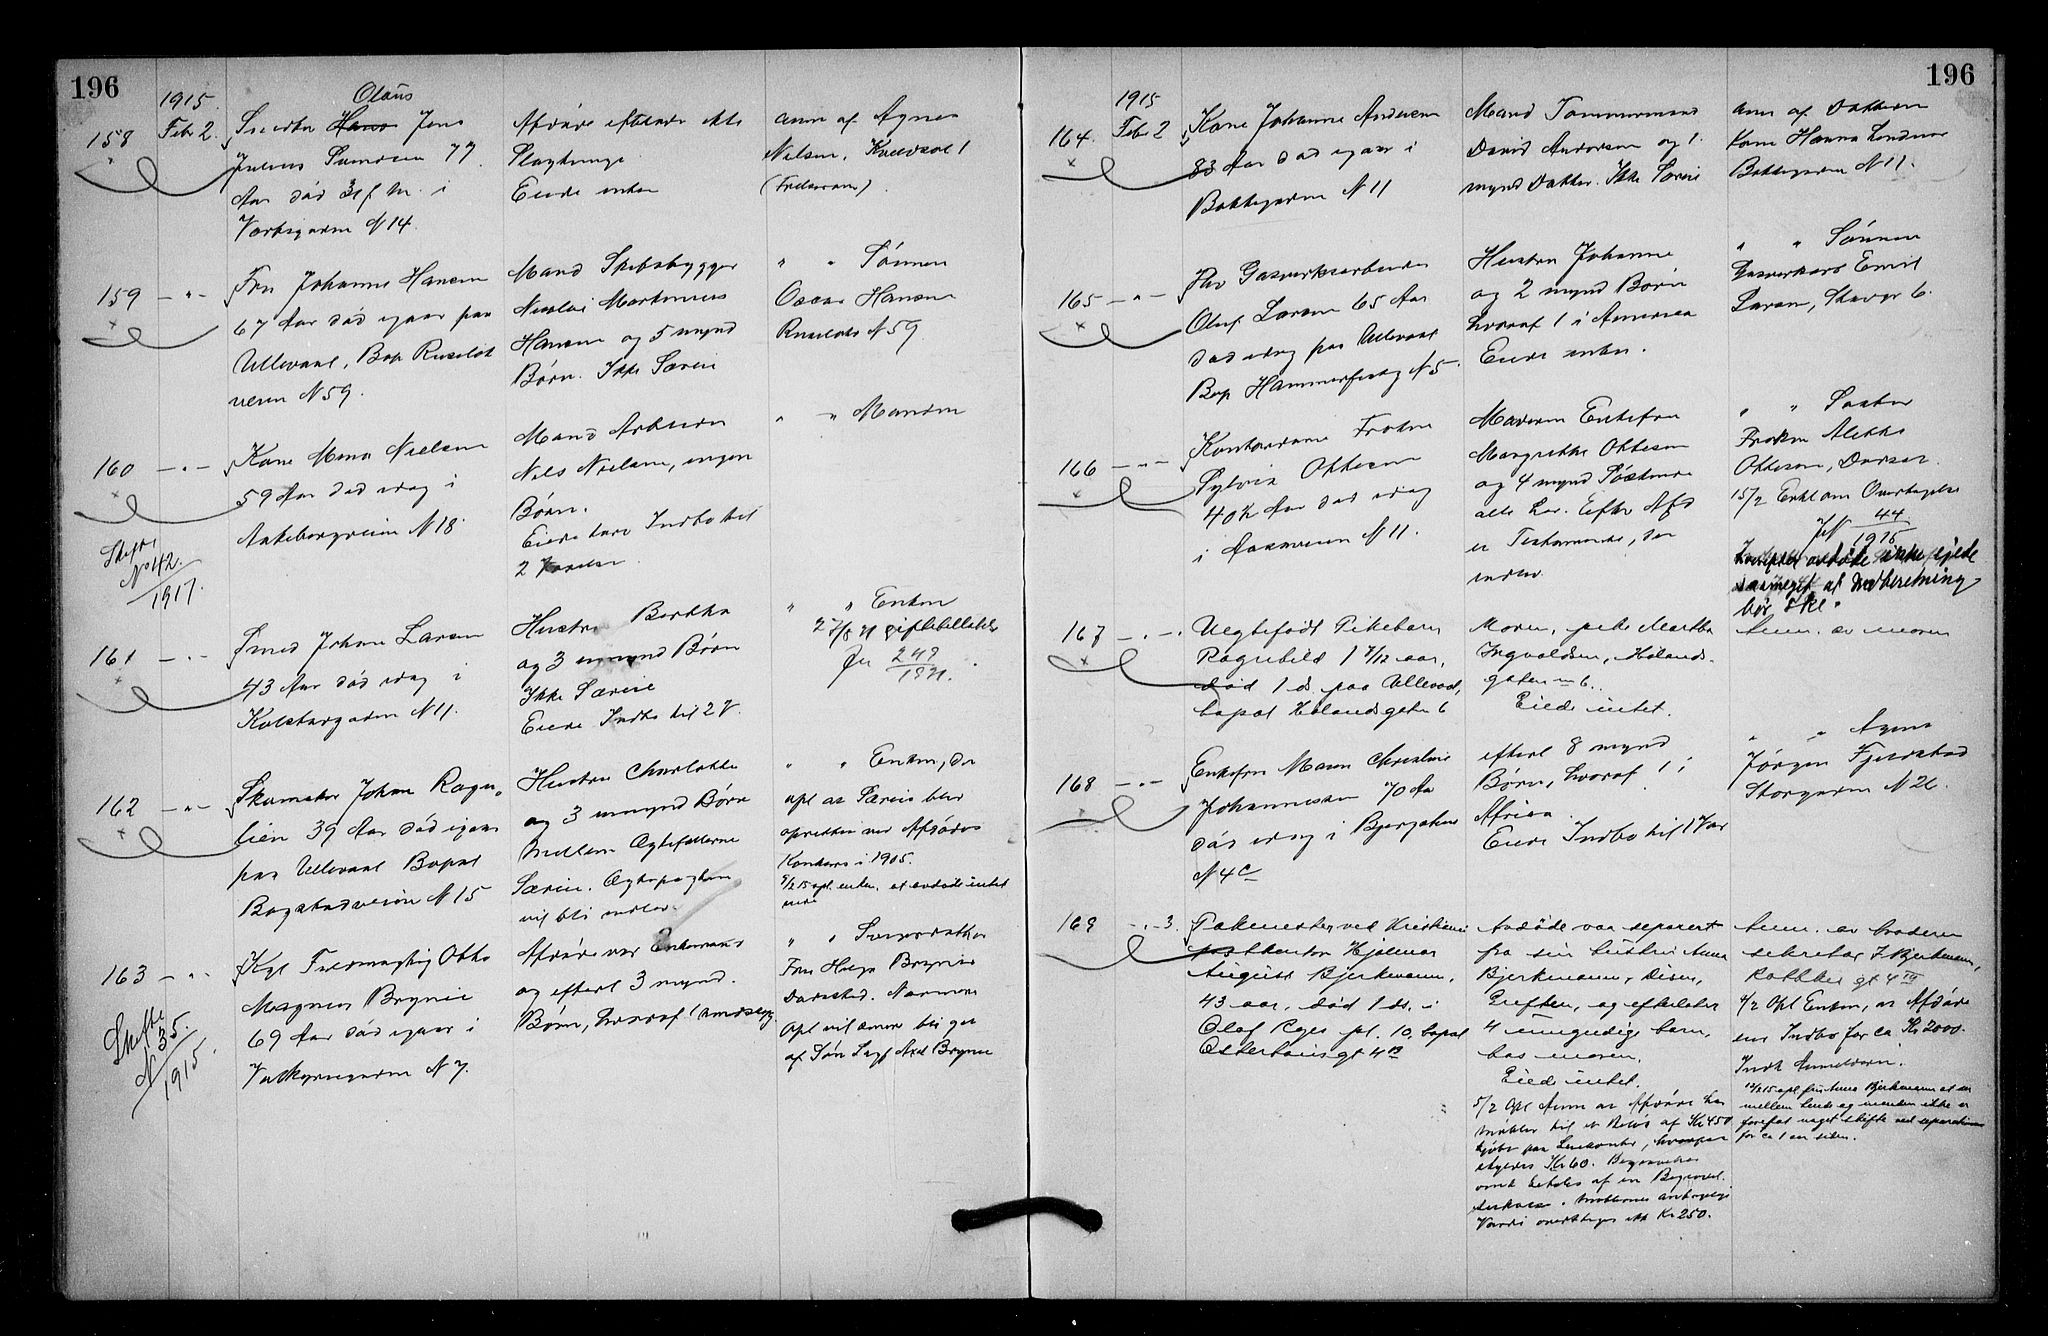 196
1915.
158
Febr 2.
Olaus
Snedker Hans Jens
Julius Svendsen 77
Aar død 31 f. M. i
Verksgaden N 14.
Afdøde efterlader ikke
Slægtninge
Eiede intet
anm af Agnes
Nilsen,
159
Fru Johanne Hansen
67 Aar død igaar paa
Ullevaal, Bop Ruseløk
veien N 59.
Mand Skibsbygger
Nicolai Martinius
Hansen og 5 mynd
Børn. Ikke Særeie
" " Sønnen
Oscar Hansen
Ruseløkv N 59
160
Kone Mina Nielsen
59 Aar død idag i
Akebergveien N 18.
Mand Arbeider
Nils Nielsen, ingen
Børn.
Eiede bare Indbo til
2 Værelser
" " Manden
Skifte
No 42.
1917.
161
Smed Johan Larsen
43 Aar død idag i
Kolstadgaden N 11.
Hustru Bertha
og 3 umynd Børn
Ikke Særeie
Eiede Indbo til 2 V.
" " Enken
27/8 21 giftebilladelse
Jn 249
1921.
162
Skomaker Johan Ragn-
lien 39 Aar død igaar
paa Ullevaal Bopæl
Bogstadveien N 15
Hustru Charlotte
og 3 umynd Børn
Mellem Ægtefællerne
Særeie. Ægtepagten
vil bli indlev
" " Enken, der
opl at Særeie blev
oprettet ved Afdødes
Konkurs i 1905.
9/2 15 opl. enken, at avdøde intet
eiede
163
Kgl Fuldmægtig Otto
Magnus Brynie
69 Aar død igaar i
Valkyriegaden N 7.
Afdøde var Enkemand
og efterl 3 mynd.
Børn, hvoraf 1
" " Svigerdatter
Fru Helga Brynie
Nærmere
Opl vil senere bli git
af Søn Axel Brynie
Skifte
N 35.
1915.
196
1915
164.
Febr 2
Kone Johanne Andersen
83 Aar død igaar i
Bakkegaden N 11
Mand Tømmermand
David Andersen og 1.
mynd Datter. Ikke Særeie
anm af Datteren
Kone Hanna
Bakkegaden N 11.
165
Olaf Larsen 65 Aar
død idag paa Ullevaal
Bop Hammerfestg N 5.
Hustru Johanne
og 2 mynd Børn
hvoraf 1 i Amerika
Eiede intet.
" " Sønnen
Gasverksarb Emil
Larsen,
166
Kontordame Frøken
Sylvia Ottesen
40½ Aar død idag
i Aasaveien N 11.
Moderen Enkefru
Margrethe Ottesen
og 4 mynd Søskende
alle her. Efter Afd
er Testamente, der
indlev.
" " Søster
Frøken
Ottesen,
15/2 Erkl om Overtagelse
JN 44
1915
avdøde ikke eiede
saameget at Indberetning
bør ske.
167
Uegtefødt Pikebarn
Ragnhild 1 7/12 aar,
død 1 ds. paa Ullevaal,
bopæl Hølandsgaten 6
Moren, pike Martha
Ingvaldsen, Hølands-
gaten 6.
Eiede intet.
Anm. av moren
168
Enkefru Maren Christine
Johannesen 70 Aar
død idag i
N 4c
efterl 8 mynd
Børn, hvoraf 1 i
Afrika
Eiede Indbo til 1 Vær
" " Agent
Jørgen Fjeldstad
Storgaden N 26.
169
3.
Pakmester ved Kristiania
postkontor Hjalmar
August Bjerkmann,
43 aar, død 1 ds. i
Olaf Ryes pl. 10, bopæl
Osterhausgt 4 B
Avdøde var separert
fra sin hustru Anna
Bjerkmann,
og efterlater
4 umyndige barn,
hos moren.
Eiede intet.
5/2 Opl Anm at Afdøde har
Møbler til et Beløb af Kr 450
kjøbt paa
skyldes Kr 60.
Værdi overstiger ikke Kr 250.
Anm. av broderen
sekretær J. Bjerkmann,
4/2 Opl Enken, at Afdøde
eier Indbo for ca Kr 2000.
Indk Anmelderen.
12/2 15 opl fru Anna Bjerkmann at der
mellem hende og manden ikke er
foretat noget skifte ved separationen
for ca 1 aar siden.